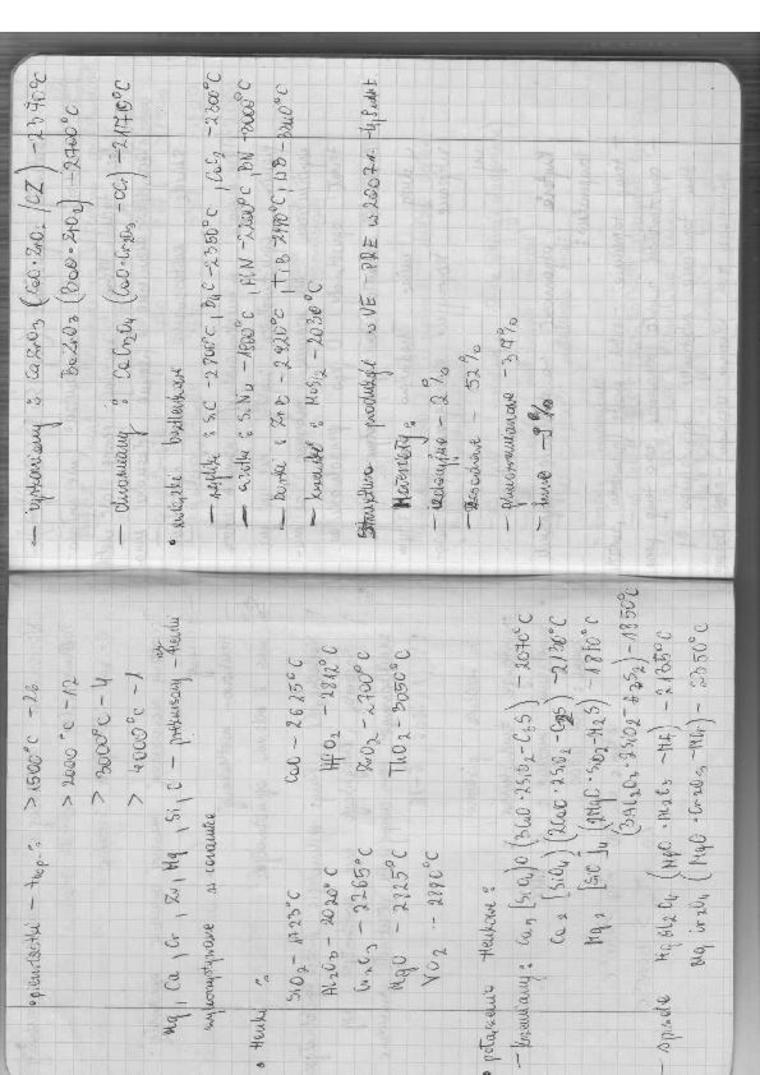 • pierwiastki – t top. : > 1500°C – 26
> 2000°C – 12
> 3000°C – 4
> 4000°C – 1
Mg, Ca, Cr, Zr, Mg, Si, C –
wykorzystywane w ceramice
• tlenki :
SiO2 – 1723°C CaO – 2625°C
Al2O3 – 2020°C HfO2 – 2812°C
Cr2O3 – 2265°C ZrO2 – 2700°C
MgO – 2825°C ThO2 – 3050°C
VO2 – 2890°C
• połączenia tlenkowe :
– krzemiany : Ca3[SiO4]O (3CaO·2SiO2–C3S) – 2070°C
Ca2[SiO4] (2CaO·2SiO2–C2S) – 2130°C
Mg2[SiO]4 (2MgO·SiO2–M2S) – 1890°C
(3Al2O3·2SiO2–A3S2) – 1850°C
– spinele MgAl2O4 (MgO·Al2O3 –MA) – 2135°C
(MgO·Cr2O3 –MCr) – 2350°C
– cyrkoniany : CaZrO3 (CaO·ZrO2 /CZ) – 2340°C
BaZrO3 (BaO·ZrO2) – 2700°C
– chromiany : CaCr2O4 (CaO·Cr2O3 –CCr) – 2170°C
• związki beztlenkowe
– węgliki : SiC – 2700°C, B4C – 2350°C, CaC2 – 2300°C
– azotki : – 1900°C, AlN – 2200°C, BN – 3000°C
– borki : ZrB – 2920°C, TiB – 2990°C,
– krzemki : MoSi2 – 2030°C
Struktura produkcji w UE – PRE w 2007 r.
Materiały :
– izolacyjne – 2%
– zasadowe – 52%
– glinokrzemianowe – 37%
– inne – 9%